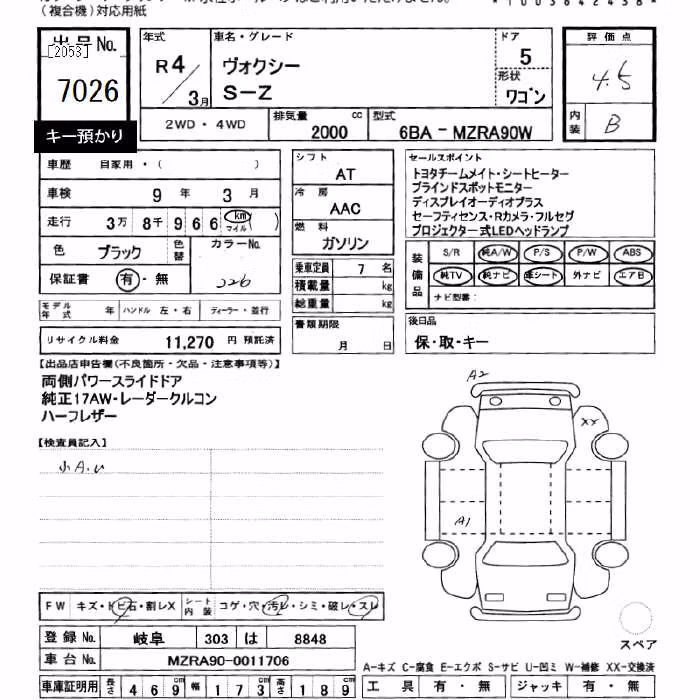 (複合機)対応用紙
出品No.
[2053]
7026
キー預かり
年式
R4/3月
車名・グレード
ヴォクシー
S-Z
ドア
5
形状
ワゴン
評価点
4.5
内装
B
2WD・4WD
排気量 cc
2000
型式
6BA-MZRA90W
車歴 自家用・( )
車検 9年 3月
走行 3万 8千 9 6 6 km マイル ( )
色 ブラック 色替 カラーNo. 226
保証書 有・無
モデル年式 年 ハンドル 左・右 ディーラー・並行
リサイクル料金 11,270 円 預託済
シフト
AT
冷房
AAC
燃料
ガソリン
乗車定員 7 名
積載量 kg
総重量 kg
書類期限
月 日
セールスポイント
トヨタチームメイト・シートヒーター
ブラインドスポットモニター
ディスプレイオーディオプラス
セーフティセンス・Rカメラ・フルセグ
プロジェクター式LEDヘッドランプ
装備品 S/R 純A/W P/S P/W ABS
純TV 純ナビ 革シート 外ナビ エアB
ナビ型番:
後日品
保・取・キー
【出品店申告欄(不良箇所・欠品・注意事項等)】
両側パワースライドドア
純正17AW・レーダークルコン
ハーフレザー
【検査員記入】
小A.U
A2
XX
A1
スペア
FW キズ・トビ石・割レX シート内装 コゲ・穴・汚レ・シミ・破レ・スレ
登録No. 岐阜 303 は 8848
車台No. MZRA90-0011706
車庫証明用 長さ 469cm 幅 173cm 高さ 189cm
A-キズ C-腐食 E-エクボ S-サビ U-凹ミ W-補修 XX-交換済
工具 有・無 ジャッキ 有・無